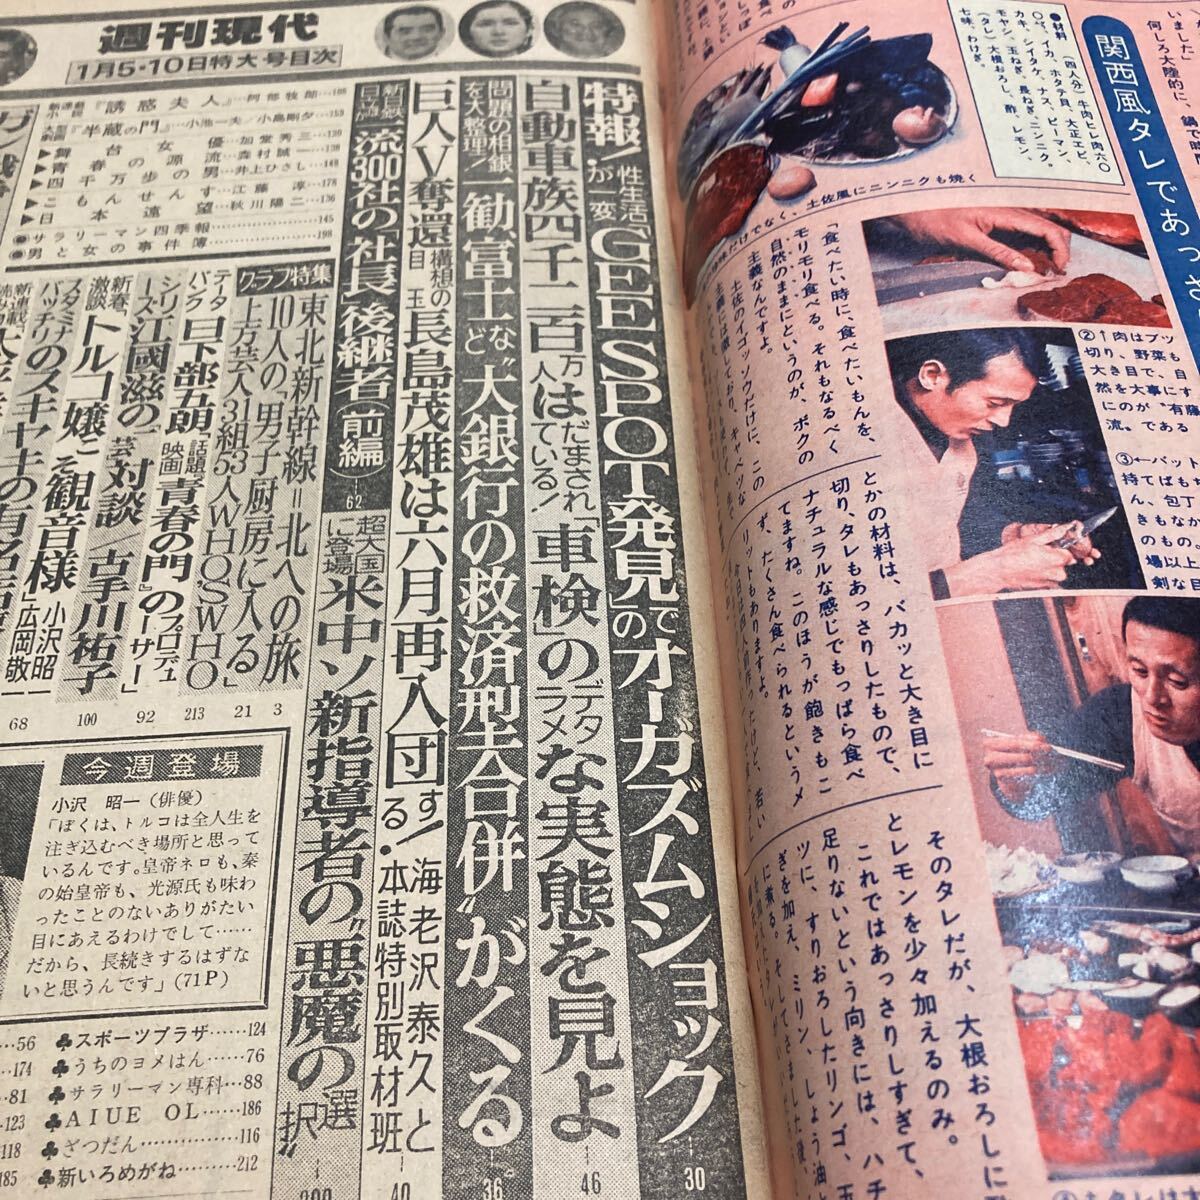 週刊現代
1月5・10日特大号目次
『誘惑夫人』…阿部牧郎…166
『半蔵の門』…小池一夫/小島剛夕…153
▶舞台女優…加堂秀三…139
▶青春の源流…森村誠一…130
▶四千万歩の男…井上ひさし…148
▶こもんせんす…江藤淳…178
▶日本遠望…秋川陽二…136
●サラリーマン四季報…145
●男と女の事件簿…198
特報!性生活が一変「GEE SPOT発見」でのオーガズムショック 30
自動車族四千二百万人はだまされている!「車検」のデタラメな実態を見よ 46
問題の相銀を大整理!一勧、富士など“大銀行の救済型合併”がくる 36
巨人V奪還構想の目玉長島茂雄は六月再入団する!海老沢泰久と本誌特別取材班 40
一流300社の「社長」後継者(前編) 62
超大国に登場米中ソ新指導者の“悪魔の選択” 200
グラフ特集
東北新幹線=北への旅 3
10人の「男子厨房に入る」 21
上方芸人31組53人WHO'S WHO 213
日下部五朗「話題の映画『青春の門』のプロデューサー」 92
シリーズ江國滋の芸対談/古手川祐子 100
新春激談トルコ嬢こそ観音様」小沢昭一 広岡敬一 68
今週登場
小沢 昭一(俳優)
「ぼくは、トルコは全人生を
注ぎ込むべき場所と思って
いるんです。皇帝ネロも、秦
の始皇帝も、光源氏も味わ
ったことのないありがたい
目にあえるわけでして……
だから、長続きするはずな
いと思うんです」(71P)
…56
…174
…81
…123
…118
…185
♣スポーツプラザ…124
♣うちのヨメはん…76
♣サラリーマン専科…88
♣AIUE OL…186
♣ざつだん…116
♣新いろめがね…212
関西風タレであっさ
いました」
何しろ大陸的に、鍋で時
●材料
(四人分)牛肉ヒレ肉六〇
〇g、イカ、ホタテ貝、大正エビ、
カキ、シイタケ、ナス、ピーマン、
モヤシ、玉ねぎ、長ねぎ、ニンニク。
(タレ)大根おろし、酢、レモン、
七味、わけぎ。
味だけでなく、土佐風にニンニクも焼く
「食べたい時に、食べたいもんを、
モリモリ食べる。それもなるべく
自然のままにというのが、ボクの
主義なんですよ。
土佐のイゴッソウだけに、この
主義には徹しており、キャベツな
とかの材料は、バカッと大き目に
切り、タレもあっさりしたもので、
ナチュラルな感じでもっぱら食べ
てますね。このほうが飽きもこ
ず、たくさん食べられるというメ
リットもありますよ。
そのタレだが、大根おろしに
とレモンを少々加えるのみ。
これではあっさりしすぎて、
足りないという向きには、ハチ
ツに、すりおろしたリンゴ、玉
ぎを加え、ミリン、しょう油と
に煮る。そしてさました後、
②↑肉はブツ
切り、野菜も
大き目で、自
然を大事にす
るのが“有藤
流”である
③←バット
持てばもち
ん、包丁
きもなか
のもの。
場以上
剣な目